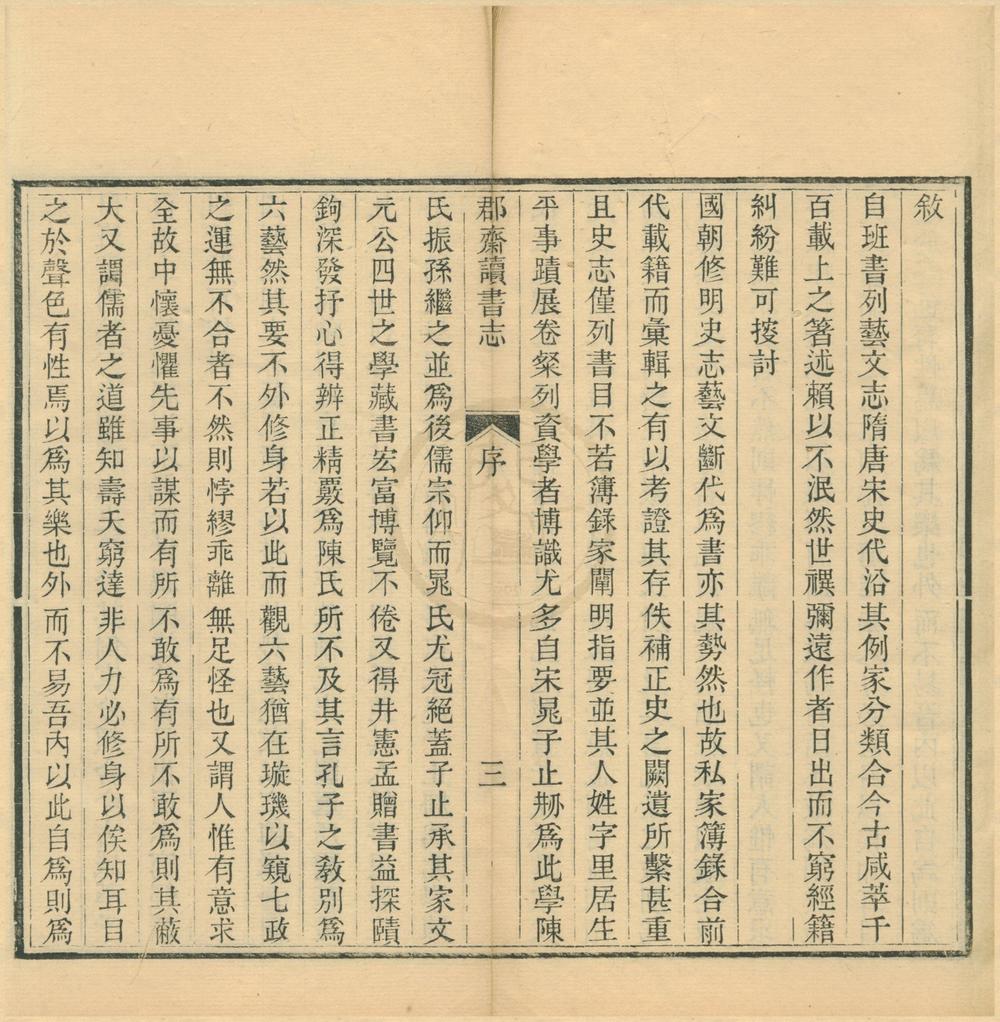 敘
自班書列藝文志隋唐宋史代沿其例家分類合今古咸萃千
百載上之箸述賴以不泯然世禩彌遠作者日出而不窮經籍
糾紛難可㨷討
國朝修明史志藝文斷代爲書亦其勢然也故私家簿錄合前
代載籍而彙輯之有以考證其存佚補正史之闕遺所繫甚重
且史志僅列書目不若簿錄家闡明指要並其人姓字里居生
平事蹟展卷粲列資學者博識尤多自宋晁子止刱爲此學陳
郡齋讀書志 序 三
氏振孫繼之並爲後儒宗仰而晁氏尤冠絕蓋子止承其家文
元公四世之學藏書宏富博覽不倦又得井憲孟贈書益探賾
鉤深發抒心得辨正精覈爲陳氏所不及其言孔子之敎別爲
六藝然其要不外修身若以此而觀六藝猶在璇璣以窺七政
之運無不合者不然則悖繆乖離無足怪也又謂人惟有意求
全故中懷憂懼先事以謀而有所不敢爲有所不敢爲則其蔽
大又謂儒者之道雖知壽夭窮達非人力必修身以俟知耳目
之於聲色有性焉以爲其樂也外而不易吾內以此自爲則爲